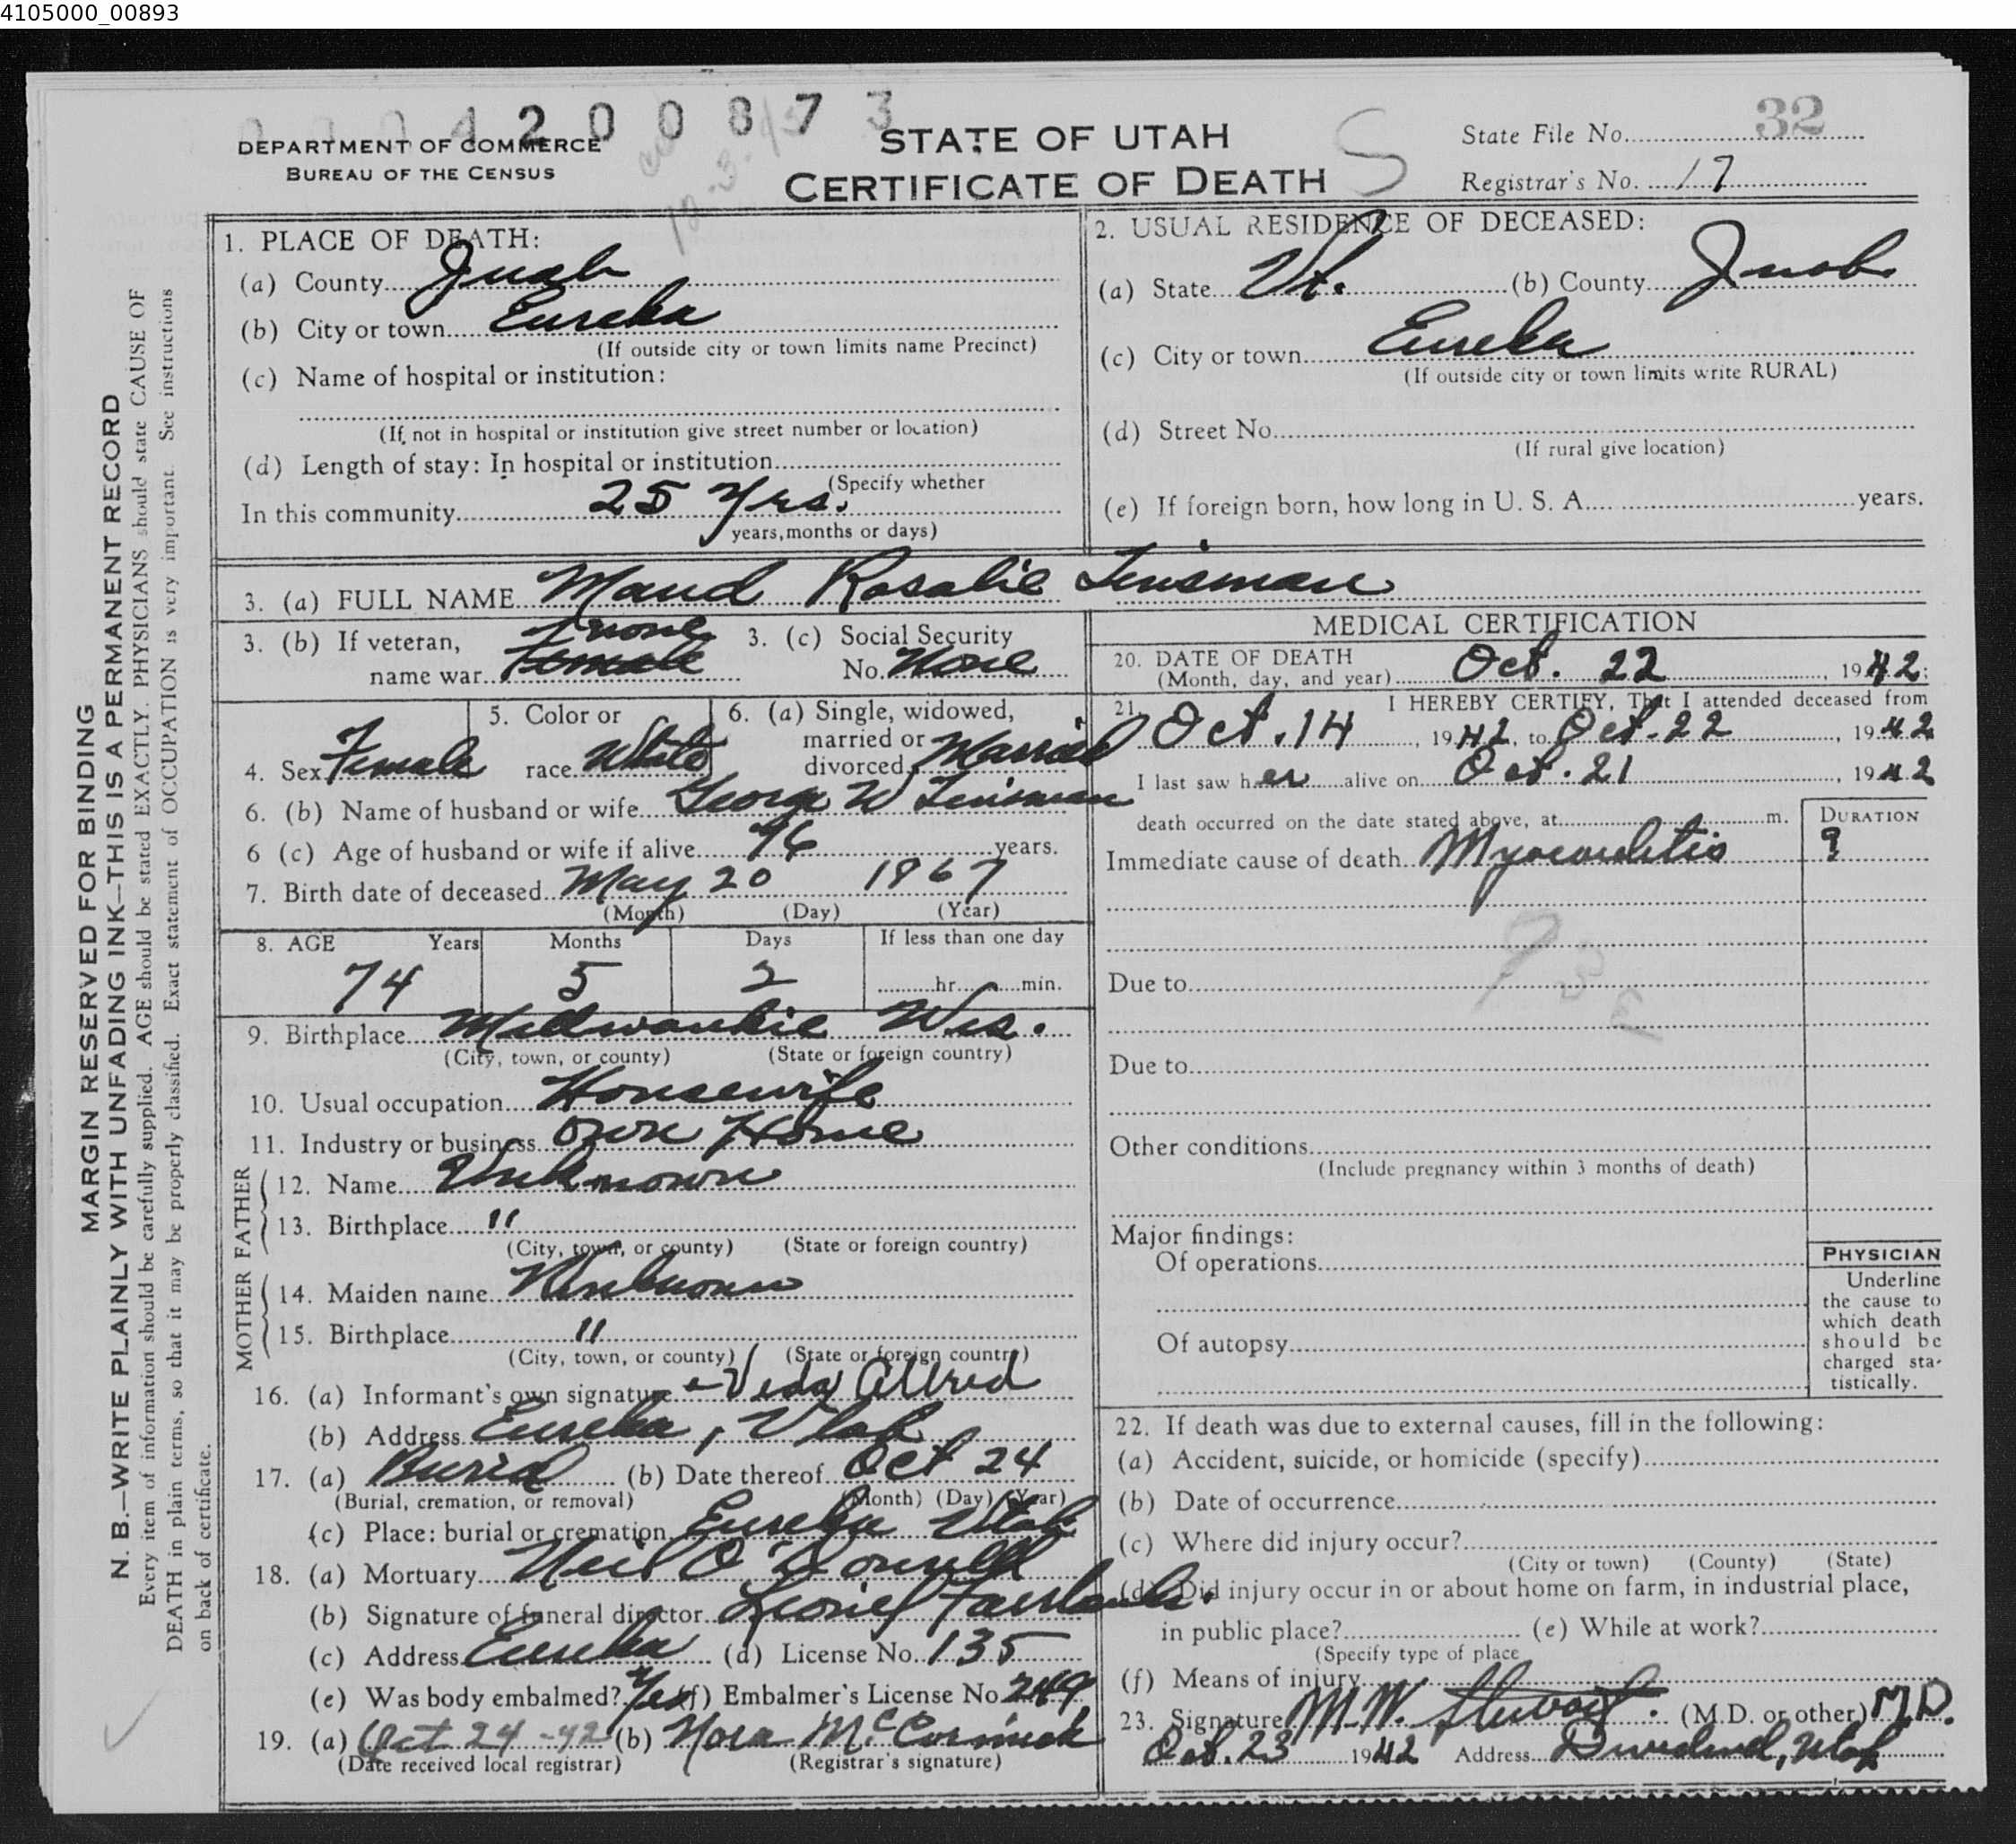 4105000_00893
0 0 0 4 2 0 0 8 7 3
DEPARTMENT OF COMMERCE
BUREAU OF THE CENSUS
STATE OF UTAH
CERTIFICATE OF DEATH
S
State File No. 32
Registrar's No. 17
MARGIN RESERVED FOR BINDING
N. B.—WRITE PLAINLY WITH UNFADING INK—THIS IS A PERMANENT RECORD
Every item of information should be carefully supplied. AGE should be stated EXACTLY. PHYSICIANS should state CAUSE OF
DEATH in plain terms, so that it may be properly classified. Exact statement of OCCUPATION is very important. See instructions
on back of certificate.
1. PLACE OF DEATH:
(a) County Juab
(b) City or town Eureka
(If outside city or town limits name Precinct)
(c) Name of hospital or institution:
(If not in hospital or institution give street number or location)
(d) Length of stay: In hospital or institution
(Specify whether
In this community 25 Yrs.
years, months or days)
2. USUAL RESIDENCE OF DECEASED:
(a) State Ut. (b) County Juab
(c) City or town Eureka
(If outside city or town limits write RURAL)
(d) Street No.
(If rural give location)
(e) If foreign born, how long in U. S. A. years.
3. (a) FULL NAME Maud Rosalie
3. (b) If veteran, none
name war Female
3. (c) Social Security
No. None
4. Sex Female
5. Color or
race White
6. (a) Single, widowed,
married or
divorced Married
6. (b) Name of husband or wife George W
6 (c) Age of husband or wife if alive 76 years.
7. Birth date of deceased May 20 1867
(Month) (Day) (Year)
8. AGE Years Months Days If less than one day
74 5 2 hr. min.
9. Birthplace Millwaukie Wis.
(City, town, or county) (State or foreign country)
10. Usual occupation Housewife
11. Industry or business Own Home
FATHER
12. Name Unknown
13. Birthplace "
(City, town, or county) (State or foreign country)
MOTHER
14. Maiden name Unknown
15. Birthplace "
(City, town, or county) (State or foreign country)
16. (a) Informant's own signature Veda Allred
(b) Address Eureka, Utah
17. (a) Burial (b) Date thereof Oct 24
(Burial, cremation, or removal) (Month) (Day) (Year)
(c) Place: burial or cremation Eureka Utah
18. (a) Mortuary Neil O'Donnell
(b) Signature of funeral director Lionel Fairbanks.
(c) Address Eureka (d) License No. 135
(e) Was body embalmed? Yes (f) Embalmer's License No. 249
19. (a) Oct 24 -42 (b) Nora McCormick
(Date received local registrar) (Registrar's signature)
MEDICAL CERTIFICATION
20. DATE OF DEATH
(Month, day, and year) Oct. 22, 1942
21. I HEREBY CERTIFY, That I attended deceased from
Oct. 14, 1942, to Oct. 22, 1942
I last saw her alive on Oct. 21, 1942
death occurred on the date stated above, at m.
DURATION
Immediate cause of death Myocarditis ?
93 E
Due to
Due to
Other conditions
(Include pregnancy within 3 months of death)
Major findings:
Of operations
Of autopsy
PHYSICIAN
Underline
the cause to
which death
should be
charged sta-
tistically.
22. If death was due to external causes, fill in the following:
(a) Accident, suicide, or homicide (specify)
(b) Date of occurrence
(c) Where did injury occur?
(City or town) (County) (State)
(d) Did injury occur in or about home on farm, in industrial place,
in public place? (e) While at work?
(Specify type of place
(f) Means of injury
23. Signature M. W. Stewart. (M.D. or other) M.D.
Oct. 23 1942 Address Dividend, Utah